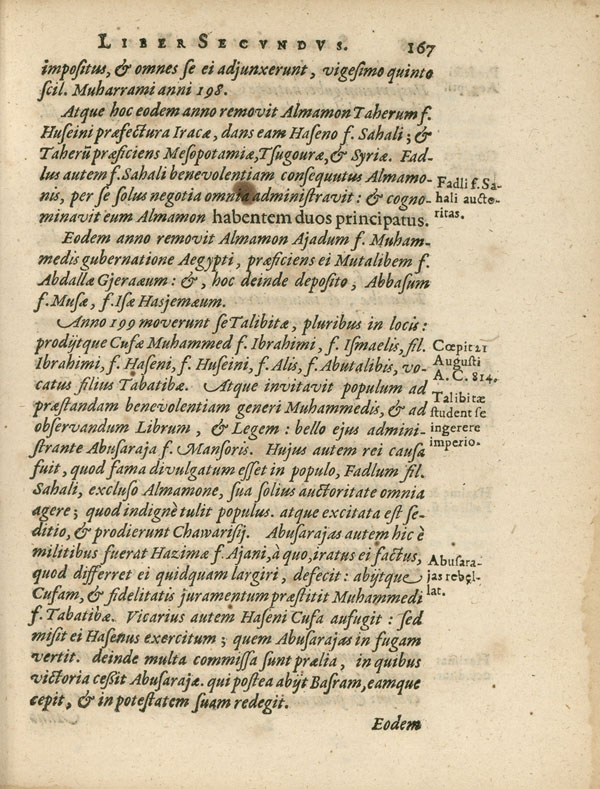 LIBER SECVNDVS. 167
impositus, & omnes se ei adjunxerunt, vigesimo quinto
scil. Muharrami anni 198.
Atque hoc eodem anno removit Almamon Taherum f.
Huseini præfectura Iracæ, dans eam Haseno f. Sahali; &
Taherū præficiens Mesopotamiæ, Tsugouræ, & Syriæ. Fad-
lus autem f. Sahali benevolentiam consequutus Almamo-
nis, per se solus negotia omnia administravit: & cogno-
minavit eum Almamon habentem duos principatus.
Fadli f. Sa-
hali aucto-
ritas.
Eodem anno removit Almamon Ajadum f. Muham-
medis gubernatione Aegypti, præficiens ei Mutalibem f.
Abdallæ Gjeraæum: &, hoc deinde deposito, Abbasum
f. Musæ, f. Isæ Hasjemæum.
Anno 199 moverunt se Talibitæ, pluribus in locis:
prodijtque Cufæ Muhammed f. Ibrahimi, f. Ismaelis, fil.
Ibrahimi, f. Haseni, f. Huseini, f. Alis, f. Abutalibis, vo-
catus filius Tabatibæ. Atque invitavit populum ad
præstandam benevolentiam generi Muhammedis, & ad
observandum Librum, & Legem: bello ejus admini-
strante Abusaraja f. Mansoris. Hujus autem rei causa
fuit, quod fama divulgatum esset in populo, Fadlum fil.
Sahali, excluso Almamone, sua solius auctoritate omnia
agere; quod indignè tulit populus. atque excitata est se-
ditio, & prodierunt Chawarisij. Abusarajas autem hic è
militibus fuerat Hazimæ f. Ajani, à quo, iratus ei factus,
quod differret ei quidquam largiri, defecit: abijtque
Cufam, & fidelitatis juramentum præstitit Muhammedi
f. Tabatibæ. Vicarius autem Haseni Cufa aufugit: sed
misit ei Hasenus exercitum; quem Abusarajas in fugam
vertit. deinde multa commissa sunt prælia, in quibus
victoria cessit Abusarajæ. qui postea abijt Basram, eamque
cepit, & in potestatem suam redegit.
Cœpit 21
Augusti
A. C. 814.
Talibitæ
student se
ingerere
imperio.
Abusara-
jas rebel-
lat.
Eodem